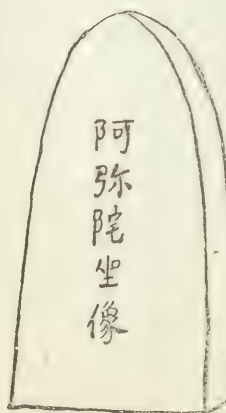 阿弥陀坐像